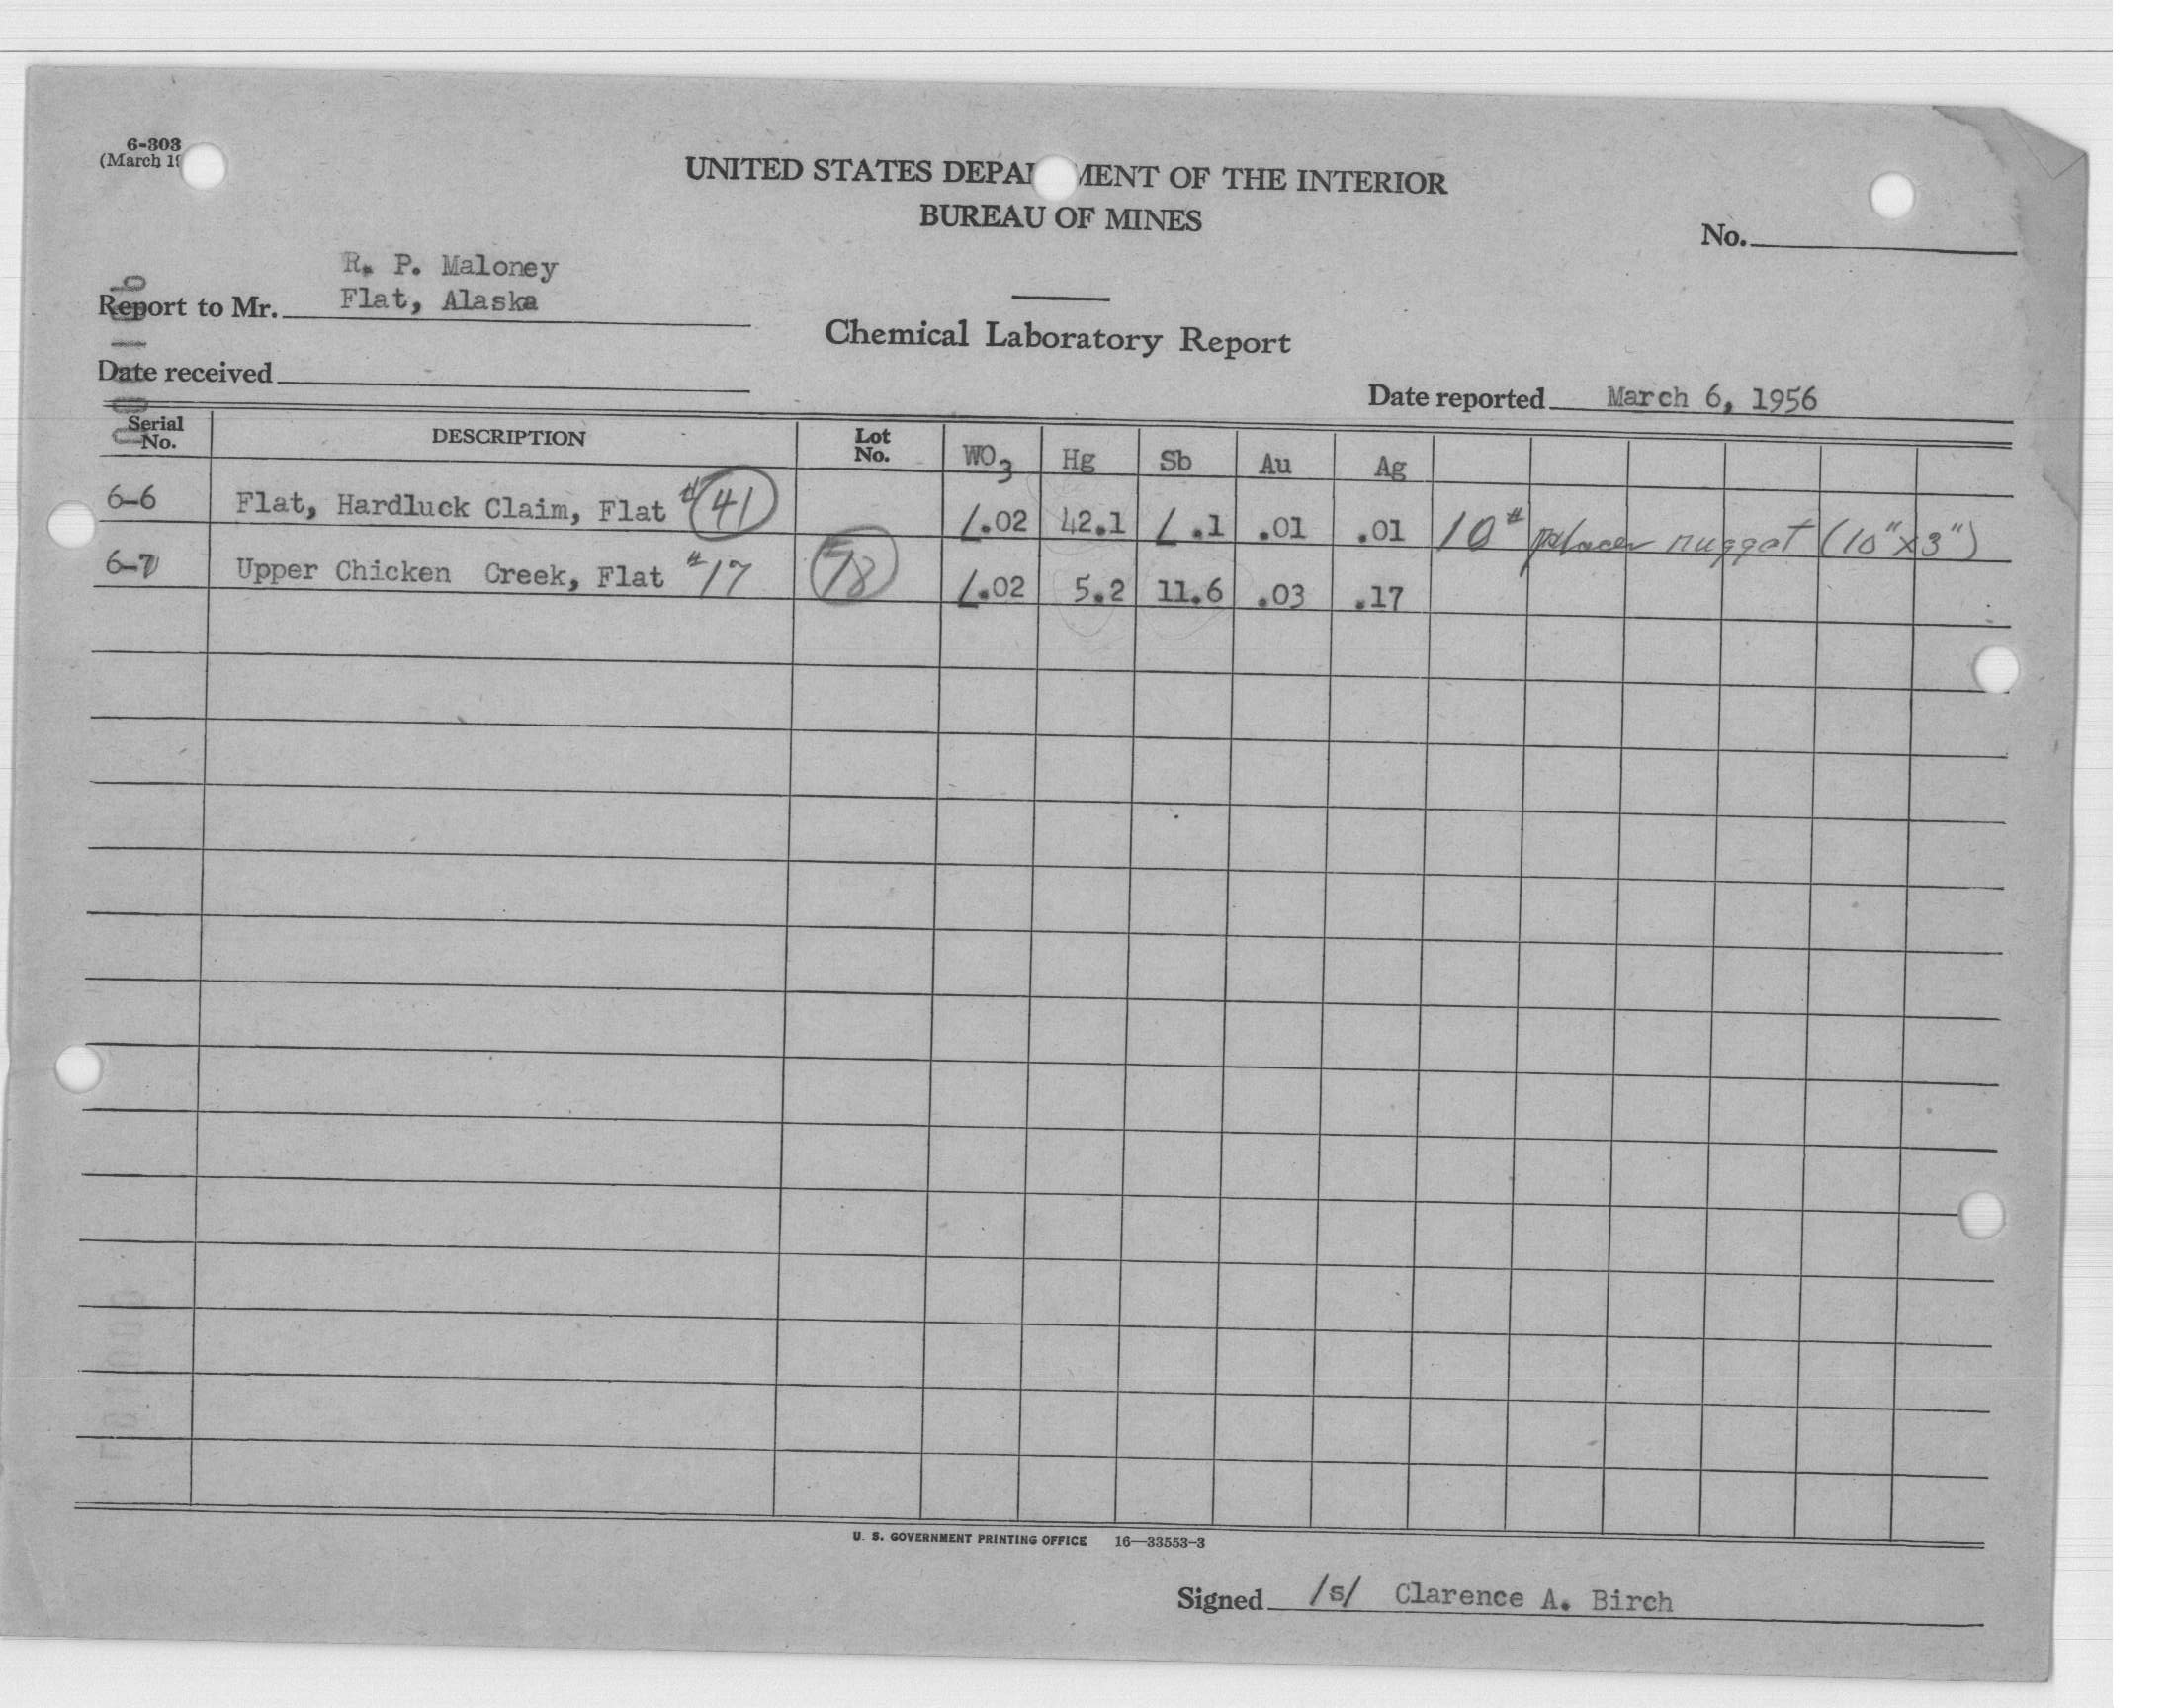 6-303
(March 19
UNITED STATES DEPARTMENT OF THE INTERIOR
BUREAU OF MINES
No.
R. P. Maloney
Report to Mr. Flat, Alaska
Chemical Laboratory Report
Date received
Date reported March 6, 1956
Serial No. DESCRIPTION Lot No. WO3 Hg Sb Au Ag
6-6 Flat, Hardluck Claim, Flat #41 ∠.02 42.1 ∠ .1 .01 .01 10# placer nugget (10"x3")
6-7 Upper Chicken Creek, Flat #17 78 ∠.02 5.2 11.6 .03 .17
U. S. GOVERNMENT PRINTING OFFICE 16—33553-3
Signed /s/ Clarence A. Birch